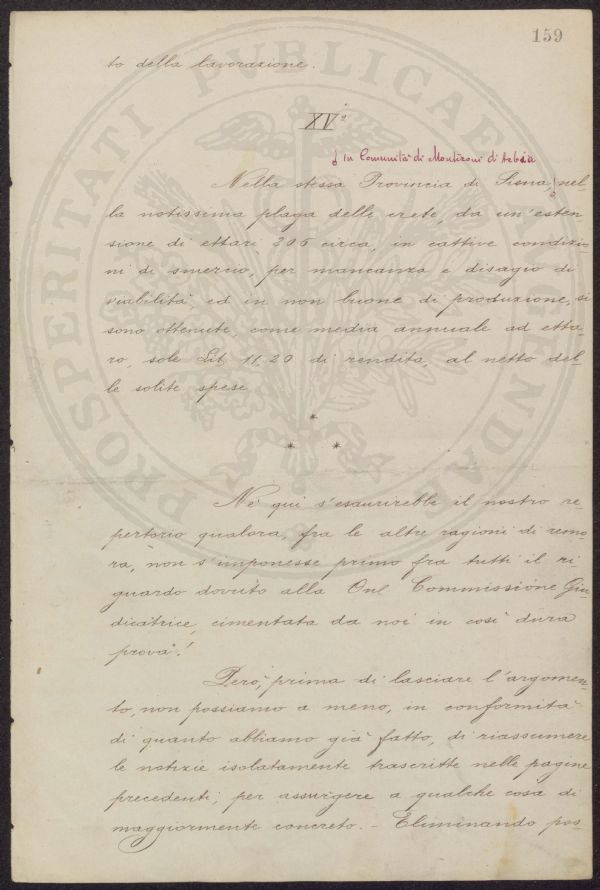 159
to della lavorazione.
XVº
in Comunità di Monteroni d'Arbia
Nella stessa Provincia di Siena, nel-
la notissima plaga delle crete, da un'esten
sione di ettari 206 circa, in cattive condizio-
ni di smercio, per mancanza e disagio di
viabilità, ed in non buone di produzione, si
sono ottenute, come media annuale ad etta-
ro, sole Lit. 11,20 di rendita, al netto del-
le solite spese
*
* *
Nè qui s'esaurirebbe il nostro re-
pertorio qualora, fra le altre ragioni di remo
ra, non s'imponesse primo fra tutti il ri-
guardo dovuto alla Onl. Commissione Giu-
dicatrice, cimentata da noi in così dura
prova!
Però, prima di lasciare l'argomen-
to, non possiamo a meno, in conformità
di quanto abbiamo già fatto, di riassumere
le notizie isolatamente trascritte nelle pagine
precedenti, per assurgere a qualche cosa di
maggiormente concreto. - Eliminando pos-
PROSPERITATI PVBLICAE AVGENDAE